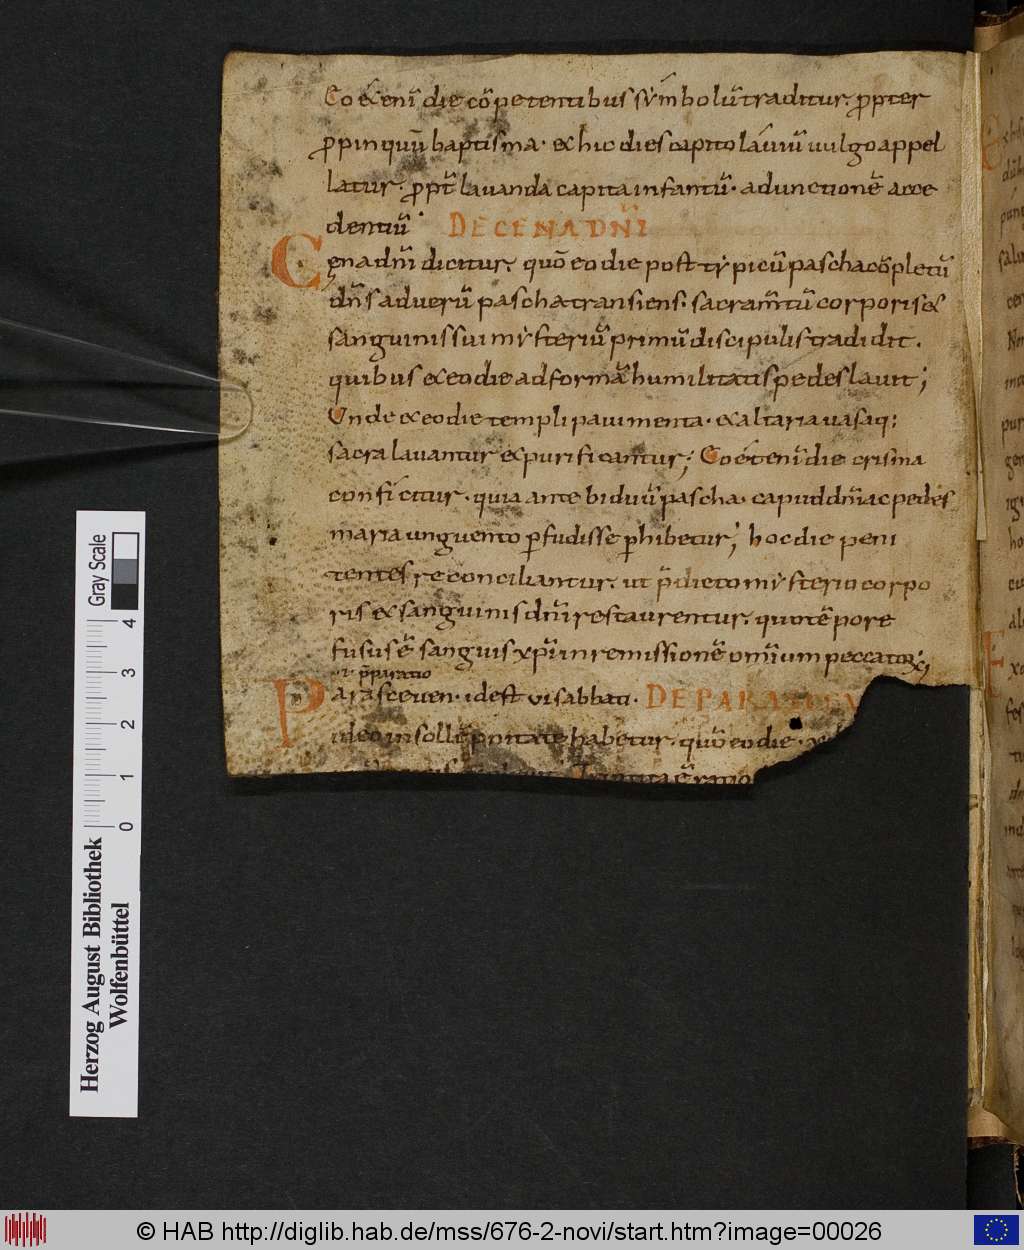 Eo & eni die cõpetentibus sẏmbolũ traditur. ꝓpter
ꝓpinquũ baptisma. & hic dies capitolauiũ uulgo appel
latur. ꝓpt̃ lauanda capita infantũ. ad unctionẽ acce
dentiũ. DE CENA DÑI
Cena dñi dicitur. quõ eo die post tẏpicũ pascha cõpletũ
dñs ad uerũ pascha transiens. sacram̃tũ corporis &
sanguinis sui mẏsteriũ primũ discipulis tradidit.
quibus & eo die ad formã humilitatis pedes lauit;
Unde & eo die templi pauimenta. & altaria uasaq;
sacra lauantur & purificantur; Eo & eni die crisma
conficitur. quia ante biduũ pascha. capud dñi ac pedes
maria unguento ꝑfudisse ꝑhibetur; hoc die peni
tentes reconciliantur. ut p̃dicto mẏsterio corpo
ris & sanguinis dñi restaurentur. quo tẽpore
fusus ẽ sanguis xp̃i in remissionẽ omĩum peccatoꝝ
.i. p̃paratio
Parasceuen. id est vi sabbati. DE PARASCEV
ideo in sollẽpnitate habetur. quõ eo die.
Herzog August Bibliothek
Wolfenbüttel
Gray Scale
0 1 2 3 4
© HAB http://diglib.hab.de/mss/676-2-novi/start.htm?image=00026